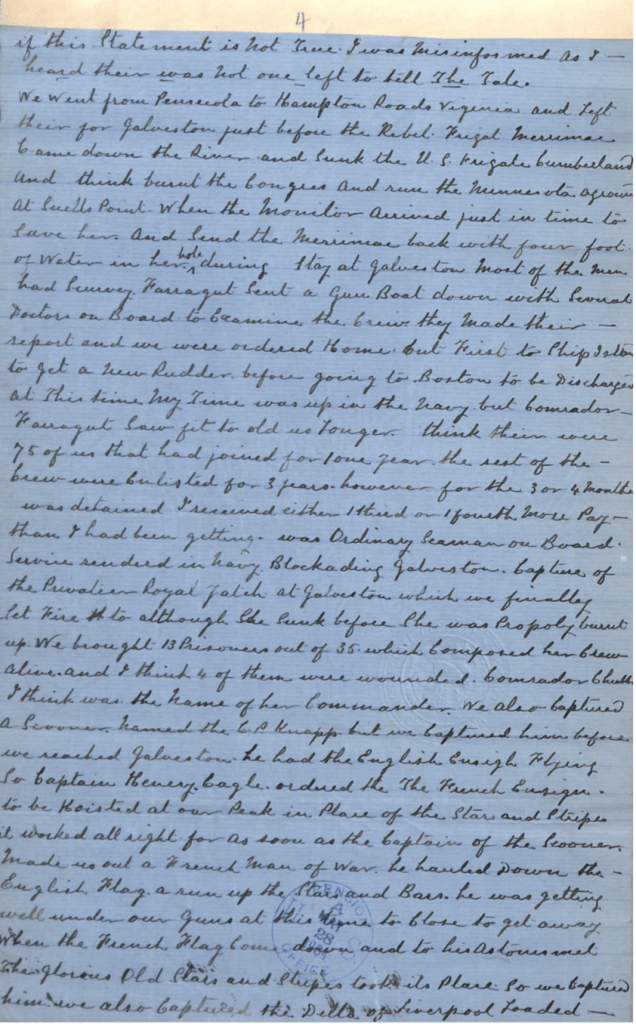 4
if this Statement is Not True. I was Misinformed as I —
heard their was Not one left to tell The Tale.
We Went from Penseciola to Hampton Roads Virginia and Left
their for Galveston just before the Rebel. Frigat Merrimac
Came down the River and Sunk the U.S. Frigate Cumberland
And think burnt the Congres And run the Minnesota agroun
At Suells Point. When the Monitor Arrived just in time to
Save her. And Send the Merrimac back with four foot
of Water in her hole during Stay at Galveston Most of the Men
had Scurvy. Farragut Sent a Gun Boat down with Several
Doctors on Board to Examine the Crew they Made their —
report and we were ordered Home but First to Ship Islan
to get a New Rudder. before going to Boston to be Discharge
at This time My Time was up in the Navy. but Comrador —
Farragut Saw fit to old us Longer. think their were
75 of us that had joined for 1 one year. the rest of the —
Crew were Enlisted for 3 years. however for the 3 or 4 Months
was detained I received either 1 third or 1 fourth More Pay —
than I had been getting. was Ordinary Seaman on Board.
Service rendered in Navy. Blockading Galveston. Capture of
the Privateer Royal Yatch at Galveston which we finally
Set Fire to although She Sunk before She was Propoly burnt
up. We brought 13 Prisoners out of 35 which Composed her Crew
alive. and I think 4 of them were wounded. Comrador
I think was the Name of her Commander. We also Captured
a Scooner. Named the C P Knapp. but we Captured him before
we reached Galveston. he had the English Ensigh Flying
So Captain Henery. Eagle. ordered the The French Ensign.
to be Hoisted at our Peak in Place of the Stars and Stripes
it worked all right for as soon as the Captain of the Scooner.
Made us out a French Man of War. he hauled Down the —
English Flag. a run up the Stars and Bars. he was getting
well under our Guns at this time to Close to get away
When the French Flag Come down and to his Astonismet
The Glorious Old Stars and Stripes took its Place. So we Captured
him. we also Captured the Delta of Liverpool Loaded —
PENSION
OFFICE
MAY
28